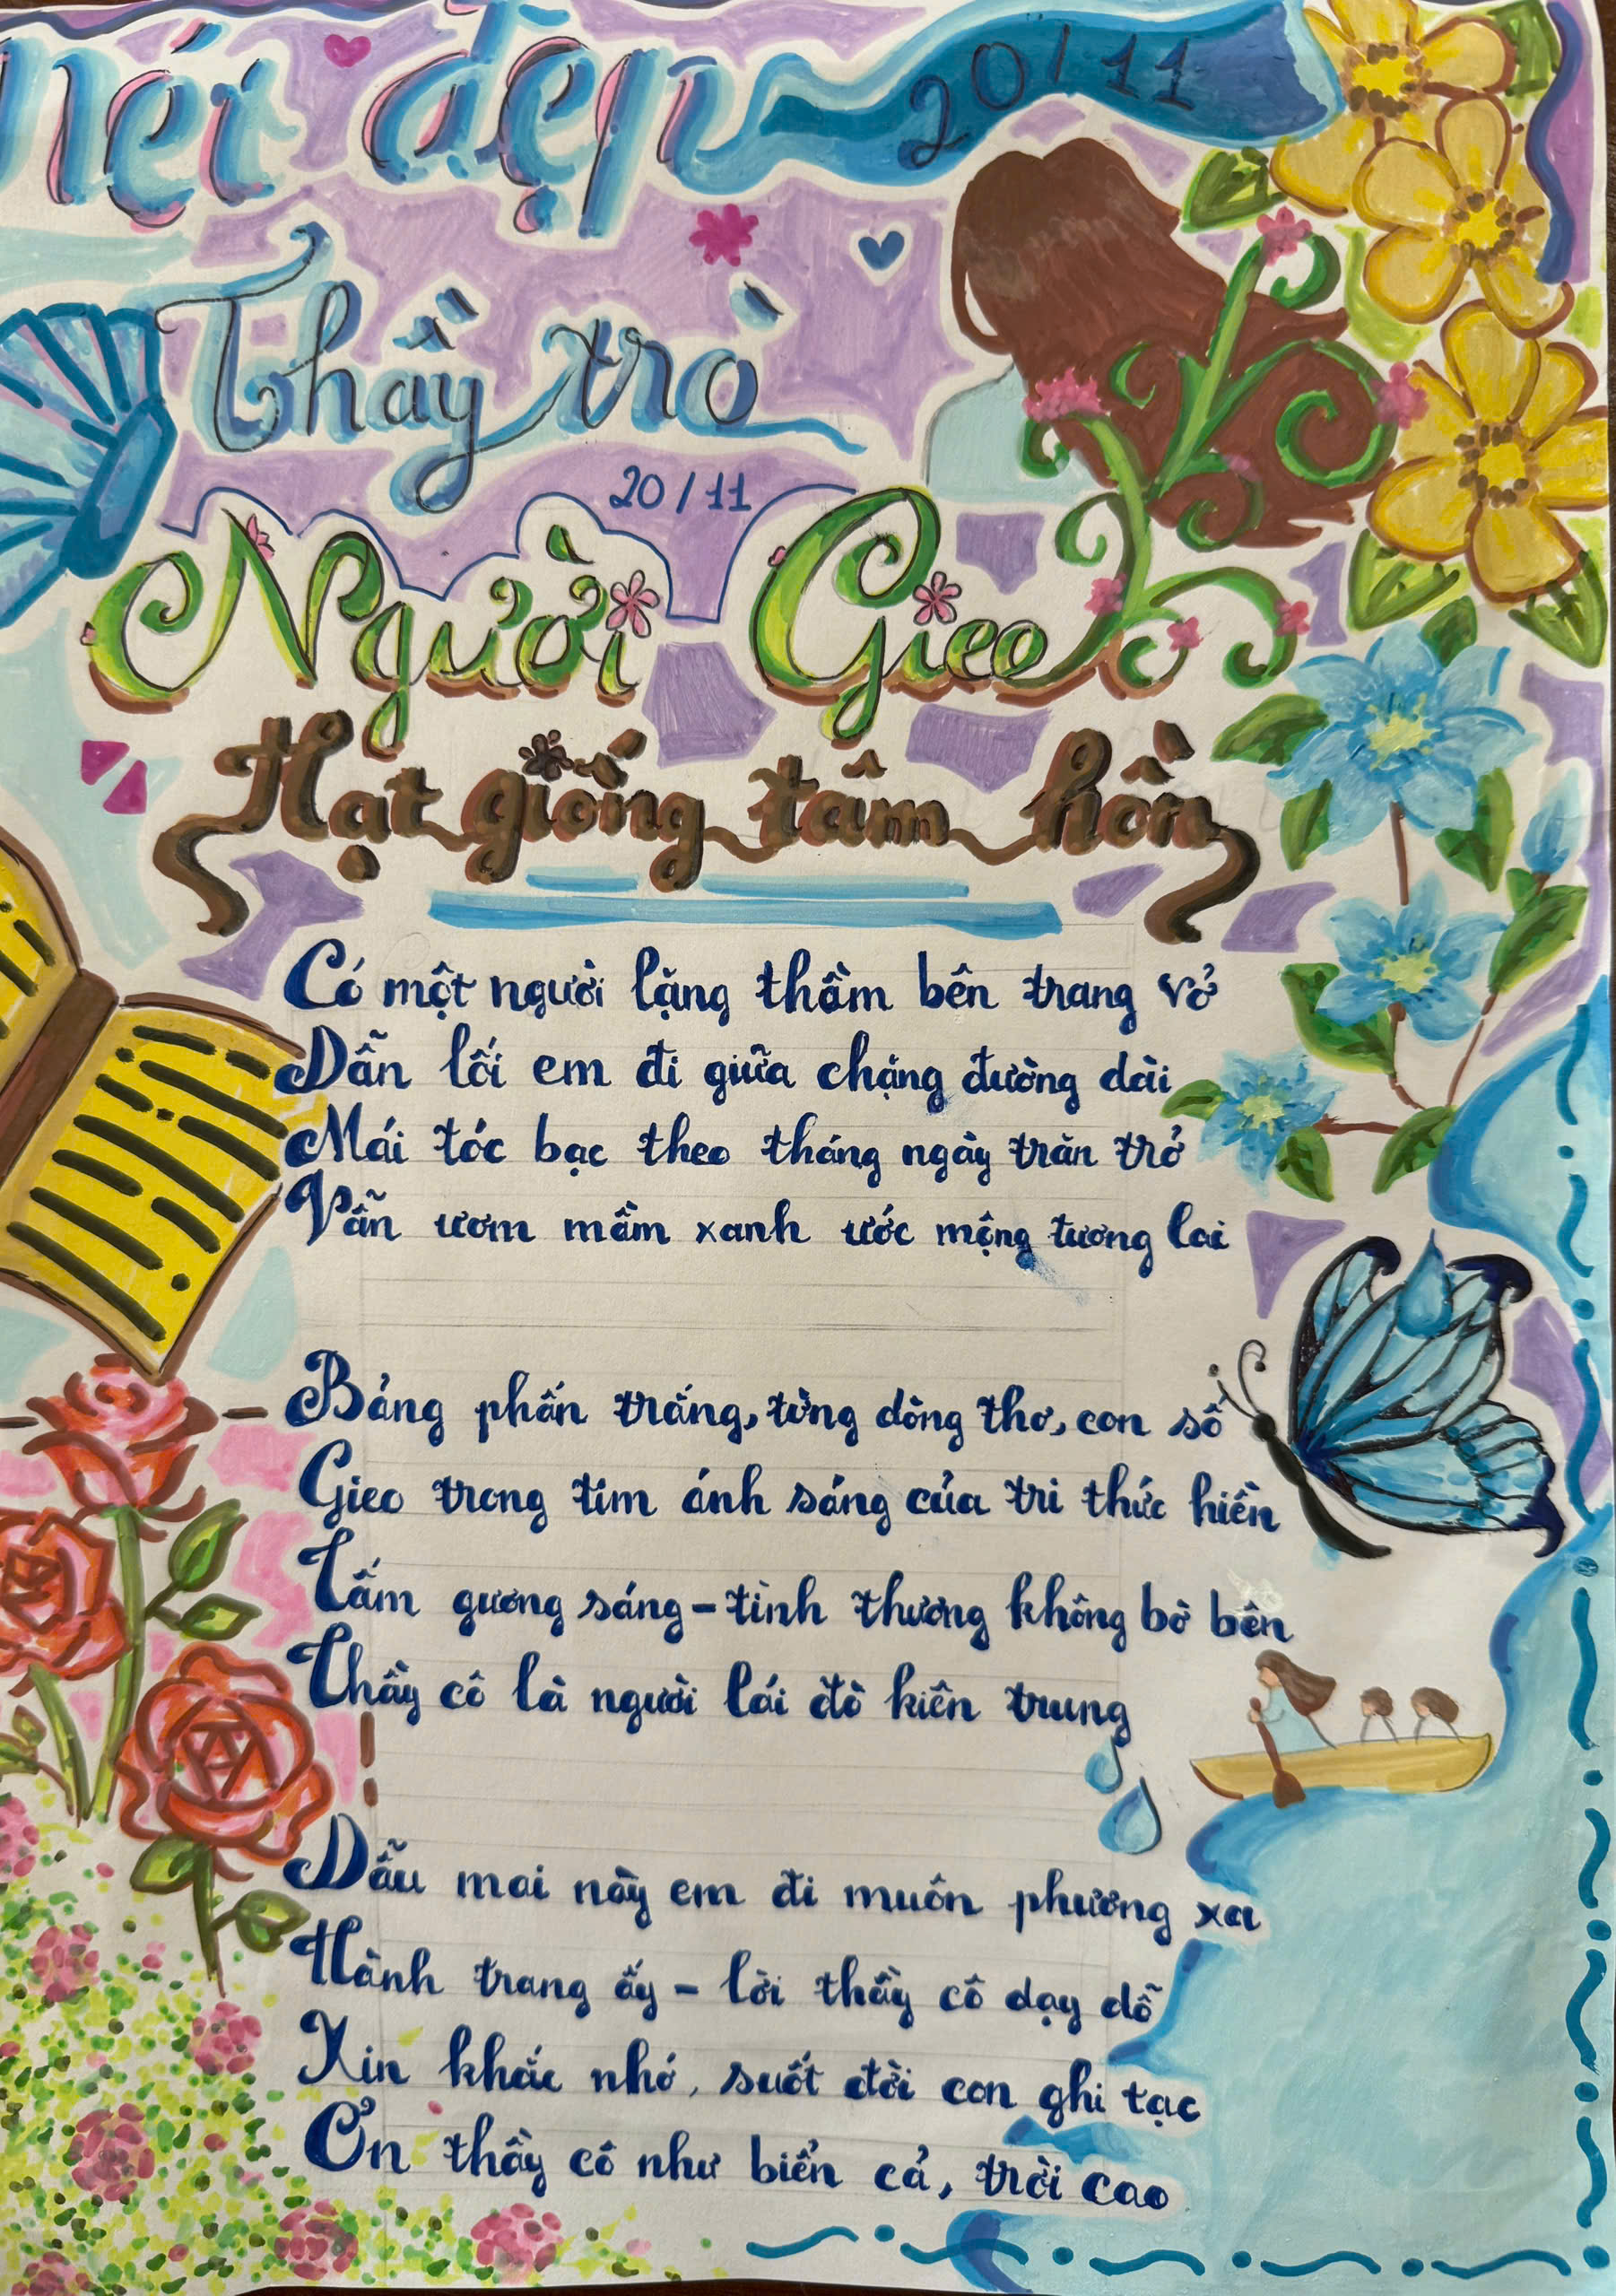 nét đẹp 20/11
Thầy trò
20/11
Người Gieo
Hạt giống tâm hồn
Có một người lặng thầm bên trang vở
Dẫn lối em đi giữa chặng đường dài
Mái tóc bạc theo tháng ngày trăn trở
Vẫn ươm mầm xanh ước mộng tương lai
Bảng phấn trắng, từng dòng thơ, con số
Gieo trong tim ánh sáng của tri thức hiền
Tấm gương sáng - tình thương không bờ bến
Thầy cô là người lái đò kiên trung
Dẫu mai này em đi muôn phương xa
Hành trang ấy - lời thầy cô dạy dỗ
Xin khắc nhớ, suốt đời con ghi tạc
Ơn thầy cô như biển cả, trời cao